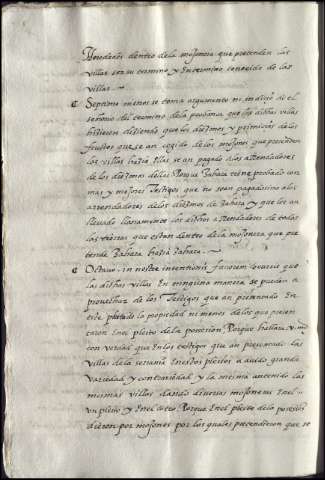 heredades dentro de la mojonera que pretenden las
villas son su termino y en termino conocido de las
villas.
Septimo menos se toma argumento ni indicio de el
señorio del termino de la probança que las dichas villas
hizieron diziendo que los diezmos y primicias de los
fructos que se an cogido de los mojones que pretenden
las villas hazia ellas se an pagado a los arrendadores
de los diezmos dellas Porque Zahara tiene probado con
mas y mejores testigos que no sean pagado sino a los
arrendadores de los diezmos de Zahara y que los an
llevado llanamente los dichos arrendadores de todas
las tierras que estan dentro de la mojonera que pre
tende Zahara hazia Zahara.
Octavo in nostre intentionis favorem que
las dichas villas En ninguna manera se pueden a
provechar de los Testigos que an presentado En
este pleito de la propiedad ni menos de los que presen
taron En el pleito de la posesion Porque hallara v. m.
con verdad que En los testigos que an presentado las
villas de la serrania En estos pleitos a avido grande
variedad y contrariedad y la mesma an tenido las
mesmas villas dando diversas mojoneras En el
un pleito y En el otro Porque En el pleito de la posesion
dieron por mojones por los quales pretendieron que se